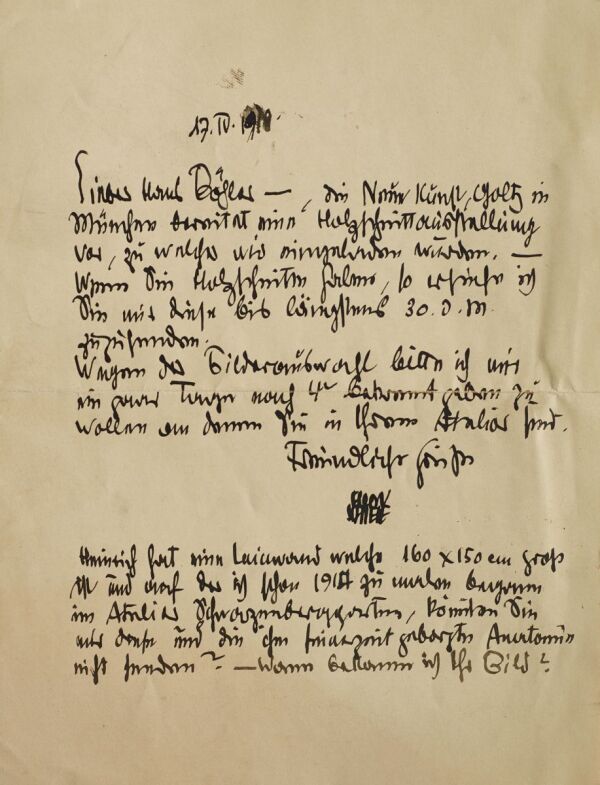 17. IV. 1918.
Lieber Hans Böhler —, die Neue Kunst, Goltz in
München bereitet eine Holzschnittausstellung
vor, zu welcher wir eingeladen wurden. —
Wenn Sie Holzschnitte haben, so ersuche ich
Sie mir diese bis längstens 30. d. M.
zuzusenden.
Wegen der Bilderauswahl bitte ich mir
ein paar Tage nach 4h bekannt geben zu
wollen an denen Sie in Ihrem Atelier sind.
Freundliche Grüße
Heinrich hat eine Leinwand welche 160 x 150 cm groß
ist und auf der ich schon 1914 zu malen begann
im Atelier Schwarzenberggarten, könnten Sie
mir diese und die ihm seinerzeit geborgte Anatomie
nicht senden? — wann bekomm ich Ihr Bild?